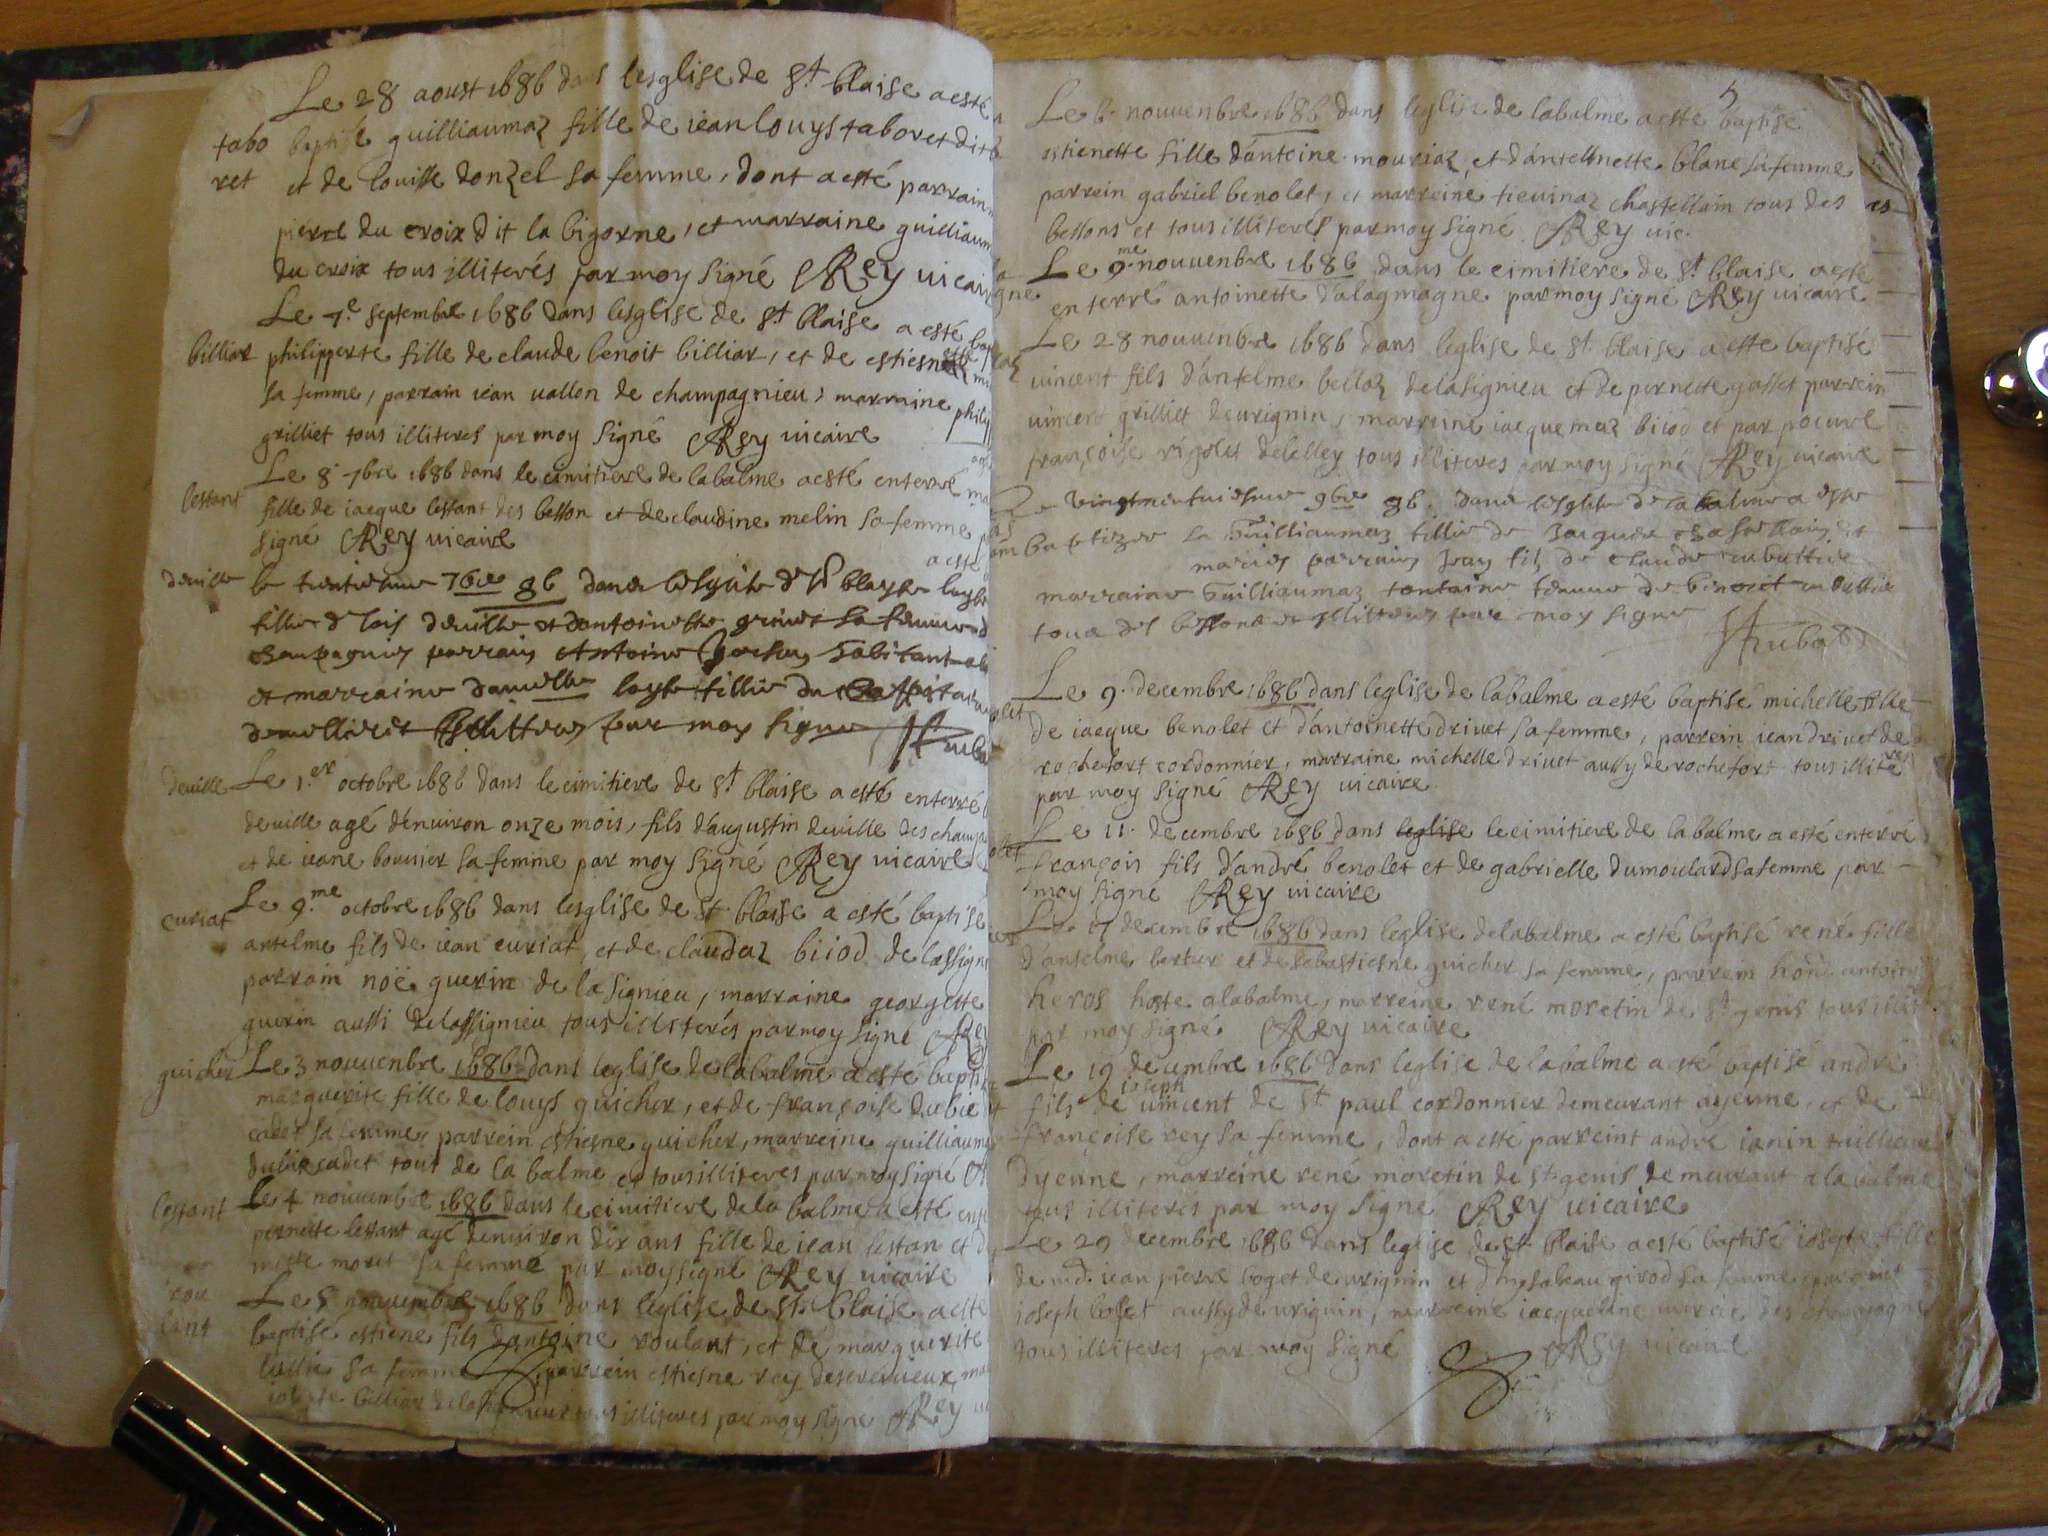 Le 28 aoust 1686 dans lesglise de St blaise a esté
tabo baptisé guilliaumaz fille de iean louys taboret dit
ret et de louisse donzel sa femme, dont a esté parrain
pierre du croix dit la bigorne, et marraine guilliaum
du croix tous illiterés par moy signé Rey vicai
Le 7.e septembre 1686 dans lesglise de St blaise a esté bap
billiar philipperte fille de claude benoit billiar, et de estiesn
sa femme, parrain iean vallon de champagnieu, marraine philip
grilliet tous illiteres par moy signé Rey vicaire
Le 8 7bre 1686 dans le cimitiere de labalme a esté enterré
lestant fille de iacque lestant des besson et de claudine melin sa femme
signé Rey vicaire
a esté
deville le trentiesme 7bre 86 dans lesglise de St blayse
fillie de lois deville et dantoinette sa femme
parrain Antoine habitant
et marraine
illitteres par moy signe
deville Le 1.er octobre 1686 dans le cimitiere de St blaise a esté enterré
deville agé denuiron onze mois, fils d'augustin deville des champ
et de ieane bouuier sa femme par moy signé Rey vicaire
Le 9.me octobre 1686 dans lesglise de St blaise a esté baptisé
curiat antelme fils de iean curiat, et de claudaz biiod de lassign
parrain noë guerin de lasignieu, marraine georgette
guerin aussi delassignieu tous illiterés par moy signé Rey
guicher Le 3 nouuenbre 1686 dans leglise de labalme a esté bapti
marguerite fille de louys guicher, et de françoise dubie
cadet sa femme, parrein estiesne guicher, marreine guilliaum
cadet tout de la balme et tous illiteres par moy signé
lestant Le 4 nouuembre 1686 dans le cimitiere de la balme a esté ente
pernette lestant agé denuiron dix ans fille de iean lestan et d
moret sa femme par moy signé Rey vicaire
rou Le 5 nouuembre 1686 dans leglise de St blaise a esté
lant baptisé estiene fils dantoine roulant, et de marguerite
sa femme parrein estiesne rey
billiar illiteres par moy signe Rey
5
Le 6. nouuenbre 1686 dans leglise de labalme a esté baptisé
estienette fille d'antoine mouriaz, et d'antelmette blanc sa femme
parrein gabriel benolet, et marreine tieuinaz chastellain tous des
bessons et tous illiterés par moy signé Rey vic.
Le 9.me nouuenbre 1686 dans le cimitiere de St blaise a esté
enterré antoinette d'alagmagne par moy signé Rey vicaire
Le 28 nouuenbre 1686 dans leglise de St blaise a esté baptisé
vincent fils d'antelme bellaz delasignieu et de pernette gosset parrein
vincent grilliet deurignin, marreine iacquemaz biiod et par
françoise tous illiteres par moy signé Rey vicaire
Le vingtnieuuiesme 9bre 86. dans lesglise de la balme a esté
baptizee la Guilliaumaz fillie de Jacques
parrain Jean fils de claude
marraine Guilliaumaz fontaine femme de
tous des bessons et Illitteres par moy signe
Le 9. decembre 1686 dans leglise de labalme a esté baptisé michelle fille
de iacque benolet et d'antoinette driuet sa femme, parrein iean driuet de
rochefort cordonnier, marraine michelle driuet aussy de rochefort tous illiteré
par moy signé Rey vicaire
Le 11. decembre 1686 dans leglise le cimitiere de la balme a esté enterré
françois fils d'andré benolet et de gabrielle dumoulard sa femme par
moy signé Rey vicaire
Le 17 decembre 1686 dans leglise delabalme a esté baptisé rené fille
d'antelme et de sebastiesne guicher sa femme, parrein hon. antoine
heros hoste alabalme, marreine rené moretin de St genis tous
par moy signé Rey vicaire
Le 19 decembre 1686 dans leglise de labalme a esté baptisé andré
ioseph
fils de vincent de St paul cordonnier demeurant ayenne, et de
françoise rey sa femme, dont a esté parreint andre ianin tailleur
dyenne, marreine rené moretin de St genis demeurant a la balme
tous illiterés par moy signé Rey vicaire
Le 29 decembre 1686 dans leglise de St blaise a esté baptisé iosepte fille
de m.d. iean pierre boget de urignin et d'hysabeau girod sa femme, parreint
ioseph boset aussy de urignin, marreine iacqueline des champagne
tous illiteres par moy signé Rey vicaire